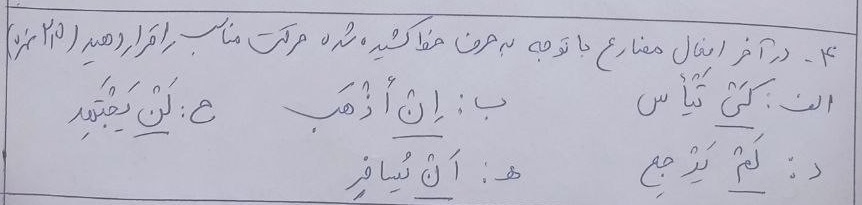 ۴- در آخر افعال مضارع با توجه به حرف خط کشیده شده حرکت مناسب را قرار دهید (۲/۵ نمره)
الف: کَیْ تَیْأس ب: اِنْ أذْهَب ج: لَنْ یَجْتَهِد
د: لَمْ یَرْجِع هـ: اَنْ یُسافِر